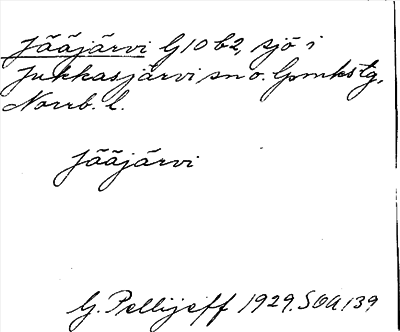 Jääjärvi G10 b2, sjö i
Jukkasjärvi sn o. Lpmkstg,
Norrb. l.
Jääjärvi
G. Pellijeff 1929. SOA 139